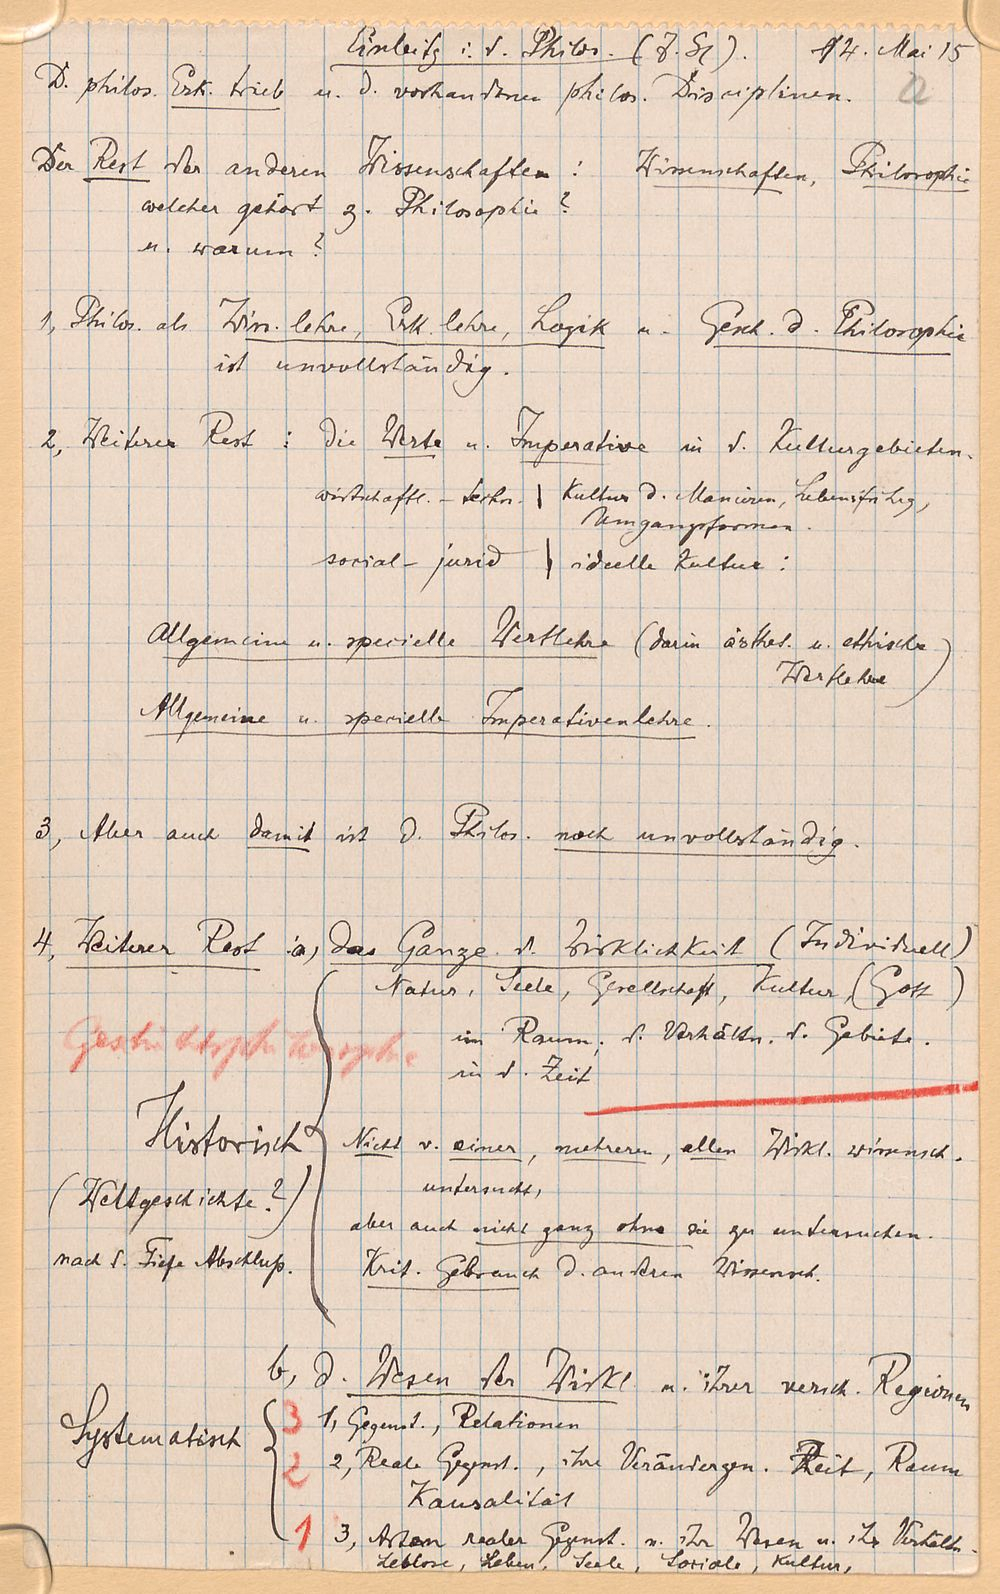 Einleitg i. d. Philos. (F. Sl). 14. Mai 15
a
D. philos. Erk. trieb u. d. vorhandenen philos. Disciplinen.
Der Rest der anderen Wissenschaften: Wissenschaften, Philosophie
welcher gehört z. Philosophie?
u. warum?
1, Philos. als Wiss. lehre, Erk. lehre, Logik u. Gesch. d. Philosophie
ist unvollständig.
2, Weiterer Rest: die Werte u. Imperative in d. Kulturgebieten.
wirtschaftl. - techn. | Kultur d. Manieren, Lebensführg,
Umgangsformen.
social - jurid | ideelle Kultur:
Allgemeine u. specielle Wertlehre (darin ästhet. u. ethische
Wertlehre)
Allgemeine u. specielle Imperativenlehre.
3, Aber auch damit ist d. Philos. noch unvollständig.
4, Weiterer Rest a, das Ganze d. Wirklichkeit (Individuell)
Natur, Seele, Gesellschaft, Kultur, (Gott)
Geschichtsphilosophie
im Raum, d. Verhältn. d. Gebiete.
in d. Zeit
Historisch
Nicht v. einer, mehreren, allen Wirkl. wissensch.
untersucht,
(Weltgeschichte?)
aber auch nicht ganz ohne sie zu untersuchen.
nach d. Tiefe Abschluß.
Krit. Gebrauch d. anderen Wissensch.
b, d. Wesen der Wirkl. u. ihrer versch. Regionen
Systematisch
3 1, Gegenst., Relationen
2 2, Reale Gegenst., ihre Verändergen. Zeit, Raum
Kausalität
1 3, Arten realer Gegenst. u. ihr Wesen u. ihr Verhältn.
Leblose, Leben, Seele, Soziale, Kultur,